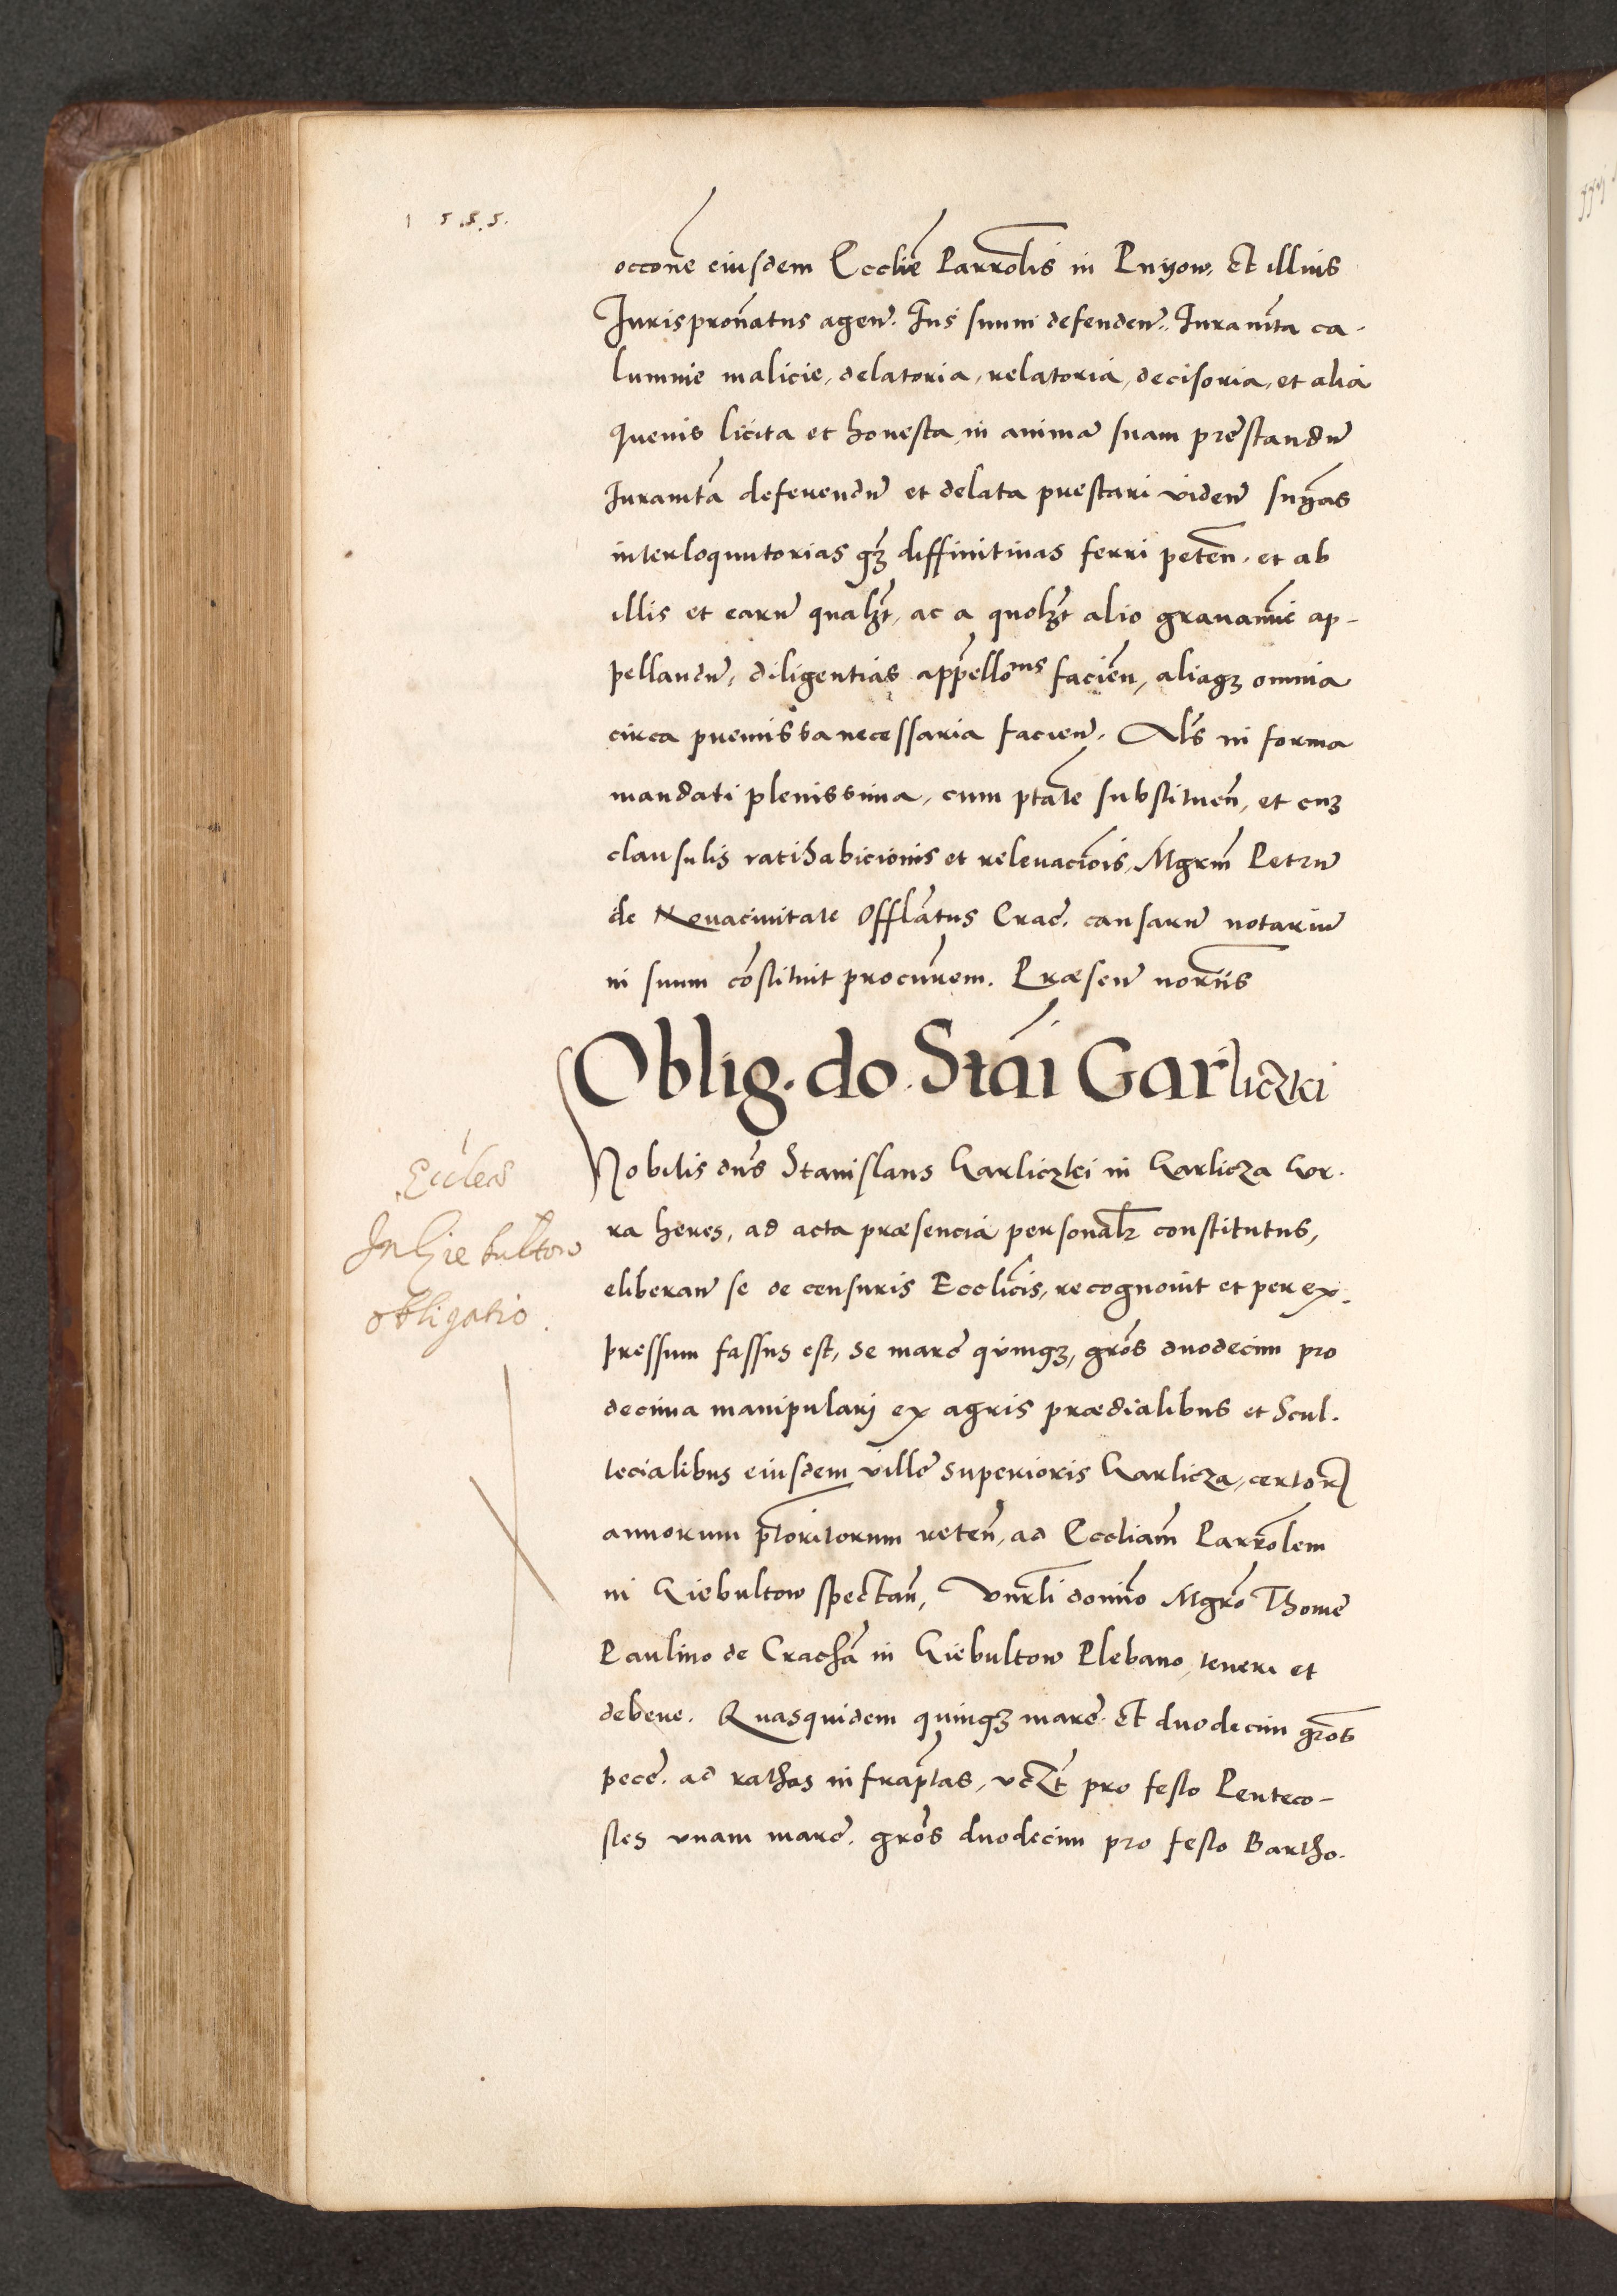 1 5.3.5.
occone eiusdem Ecclie Parrolis in Pnyow, Et illius
Jurispronatus agen. Jus suum defenden. Juramta ca-
lumnie malicie, delatoria, relatoria, decisoria, et alia
quevis licita et honesta in anima suam prestandu
Juramta deferendu et delata prestari viden snias
interloquutorias qz diffinitivas ferri peten. et ab
illis et earu qualzt, ac a quolzt alio gravamie ap-
pellandu, diligentias appellonis facien, aliaqz omnia
circa premissa necessaria facien. Als in forma
mandati plenissima, cum ptate substituen, et cuz
clausulis ratihabicionis et relevaciois, Mgrm Petru
de Novacivitate Offlatus Crac. causaru notariu
in suum costituit procurem. Præsen noriis
Oblig. do. Stai Garliczki
Nobilis dns Stanislaus Garliczki in Garlicza Gor-
ra heres, ad acta præsencia personalr constitutus,
eliberan se de censuris Ecclicis, recognovit et per ex-
pressum fassus est, se marc quinqz, gros duodecim pro
decima manipulari ex agris prædialibus et Scul-
tecialibus eiusdem ville superioris Garlicza, certor
annorum ptoritorum reten, ad Eccliam Parrolem
in Giebultow spectan, Vnrli domino Mgro Thome
Paulino de Cracha in Giebultow Plebano, teneri et
debere. Quasquidem quinqz marc. Et duodecim gros
pecc. ad rathas infraptas, vczt pro festo Penteco-
stes vnam marc. gros duodecim pro festo Bartho-
Eccles
In Giebultow
obligatio.